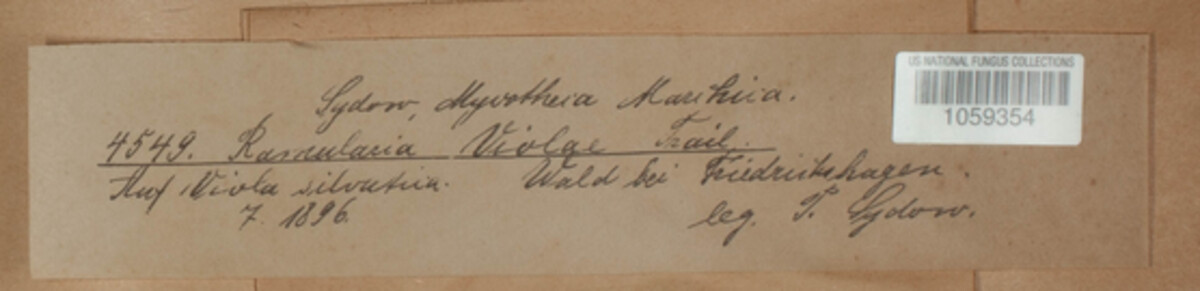 Sydow, Mycotheca Marchica.
4549. Ramularia Violae Trail.
Auf Viola silvatica. Wald bei Friedrichshagen.
7. 1896.
leg. P. Sydow.
US NATIONAL FUNGUS COLLECTIONS
1059354